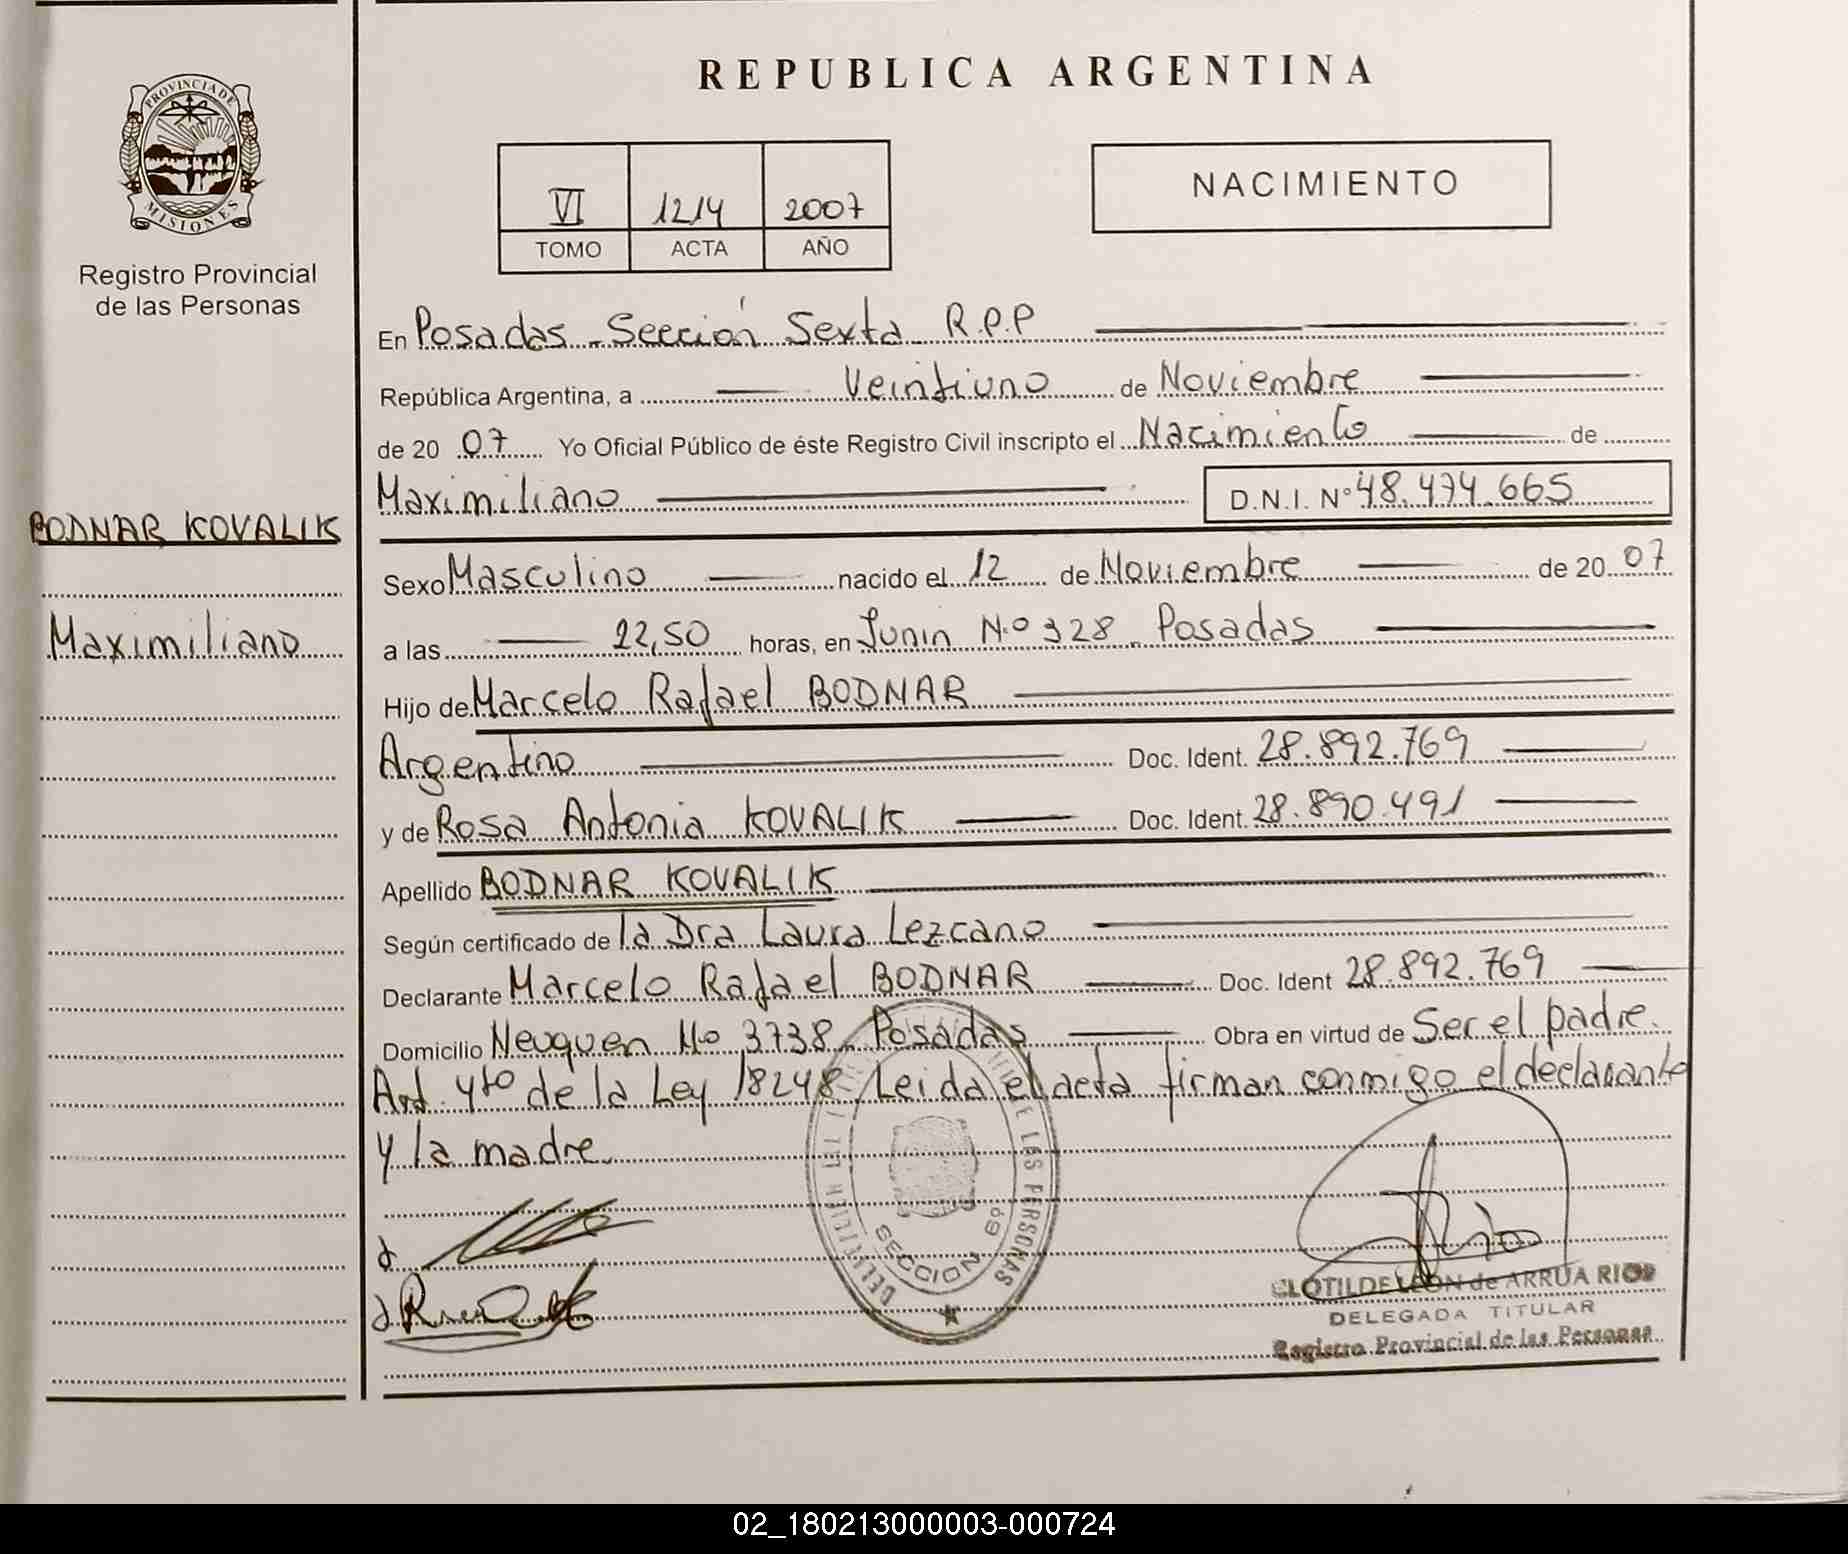 REPUBLICA ARGENTINA
PROVINCIA DE
MISIONES
Registro Provincial
de las Personas
VI 1214 2007
TOMO ACTA AÑO
NACIMIENTO
BODNAR KOVALIK
Maximiliano
En Posadas - Sección Sexta R.P.P
República Argentina, a Veintiuno de Noviembre
de 20 07 Yo Oficial Público de éste Registro Civil inscripto el Nacimiento de
Maximiliano D.N.I. Nº 48.474.665
Sexo Masculino nacido el 12 de Noviembre de 20 07
a las 22,50 horas, en Junin Nº 328 - Posadas
Hijo de Marcelo Rafael BODNAR
Argentino Doc. Ident. 28.892.769
y de Rosa Antonia KOVALIK Doc. Ident. 28.890.491
Apellido BODNAR KOVALIK
Según certificado de la Dra Laura Lezcano
Declarante Marcelo Rafael BODNAR Doc. Ident 28.892.769
Domicilio Neuquen Nº 3738 - Posadas Obra en virtud de Ser el padre.
Art. 4to de la Ley 18248, Leida el acta firman conmigo el declarante
y la madre.
DE LAS PERSONAS
SECCION 6º
CLOTILDE LEON de ARRUA RIOS
DELEGADA TITULAR
Registro Provincial de las Personas
02_180213000003-000724